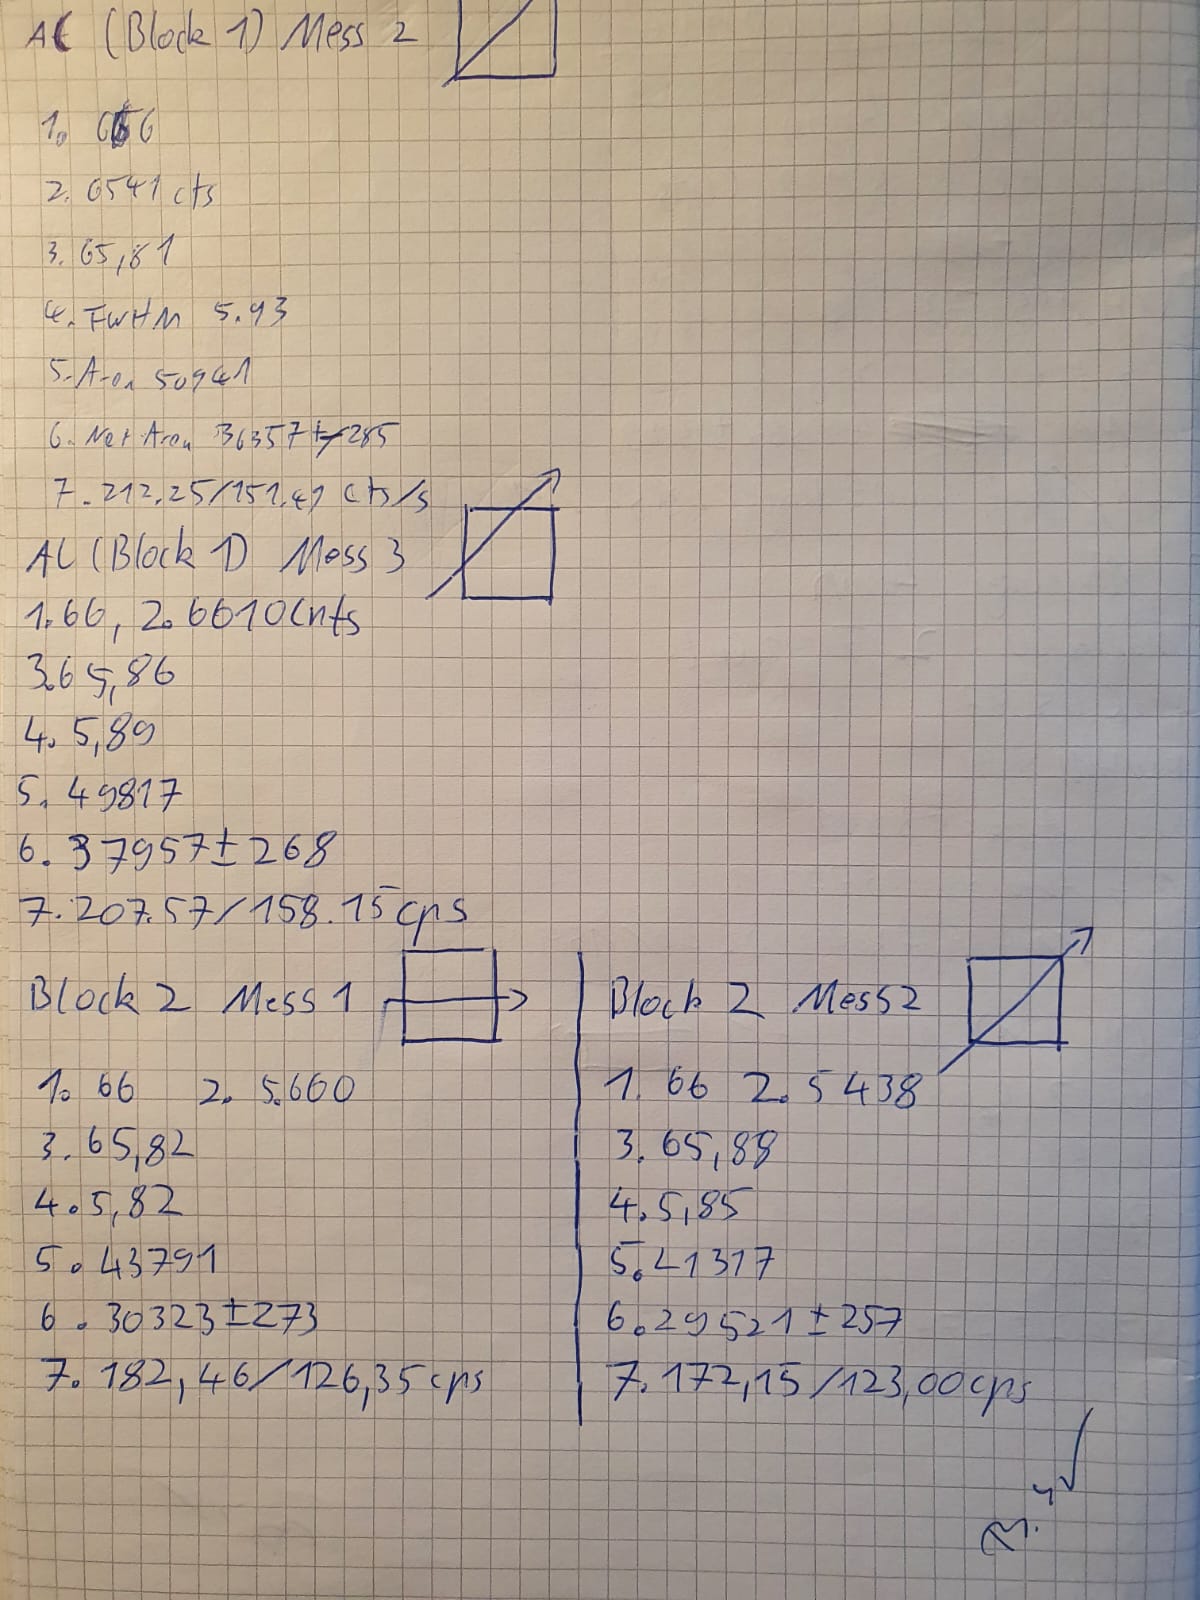 AL (Block 1) Mess 2
1. 66
2. 6541 cts
3. 65,81
4. FWHM 5.93
5. Area 50941
6. Net Area 36357 +/- 285
7. 212.25/151.49 cts/s
AL (Block 1) Mess 3
1. 66, 2. 6610 Cnts
3. 65,86
4. 5,89
5. 49817
6. 37957 ± 268
7. 207.57/158.15 cps
Block 2 Mess 1
1. 66 2. 5.600
3. 65,82
4. 5,82
5. 43791
6. 30323 ± 273
7. 182,46/126,35 cps
Block 2 Mess 2
1. 66 2. 5438
3. 65,88
4. 5,85
5. 41317
6. 29521 ± 257
7. 172,15/123,00 cps